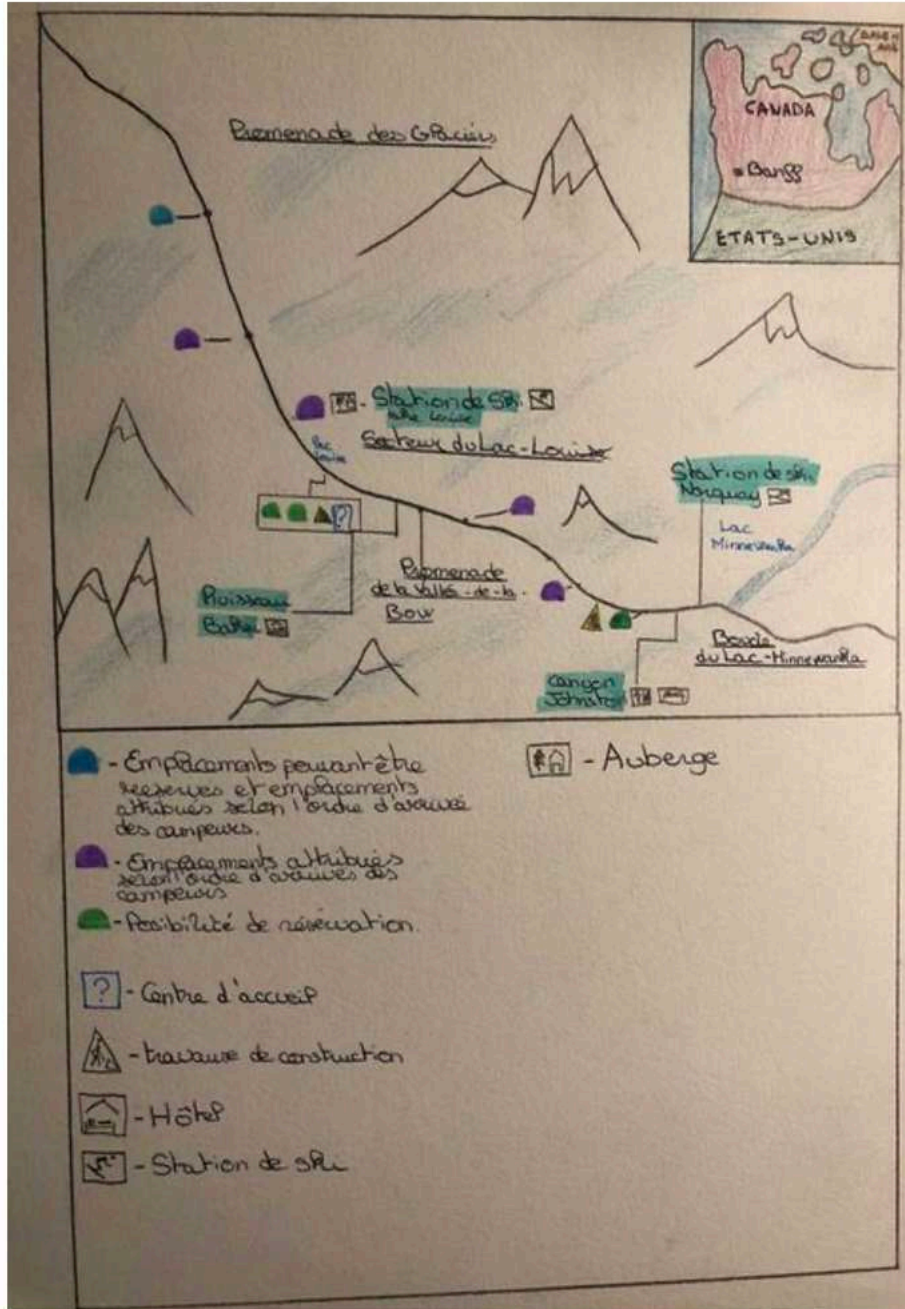 CANADA
Banff
ETATS-UNIS
Promenade des Glaciers
Station de Ski
Lake Louise
Secteur du Lac-Louise
Lac
Louise
Station de ski
Norquay
Lac
Minnewanka
?
Promenade
de la Vallé-de-la-
Bow
Ruisseau
Baker
Boucle
du Lac-Minnewanka
Canyon
Johnston
- Emplacements peuvant être
reserves et emplacements
attribués selon l'ordre d'arrivée
des campeurs.
- Emplacements attribués
selon l'ordre d'arrives des
campeurs
- Posibilité de réservation.
? - Centre d'accueil
- travaux de construction
- Hôtel
- Station de ski
- Auberge